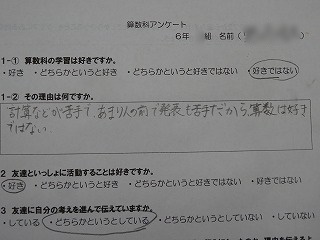 算数科アンケート
６年　　組　名前（
1-① 算数科の学習は好きですか。
・好き　・どちらかというと好き　・どちらかというと好きではない　・好きではない
1-② その理由は何ですか。
計算などが苦手で、あまり人の前で発表も苦手だから算数は好き
ではない。
2 友達といっしょに活動することは好きですか。
・好き　・どちらかというと好き　・どちらかというと好きではない　・好きではない
3 友達に自分の考えを進んで伝えていますか。
・している　・どちらかというとしている　・どちらかというとしていない　・していない